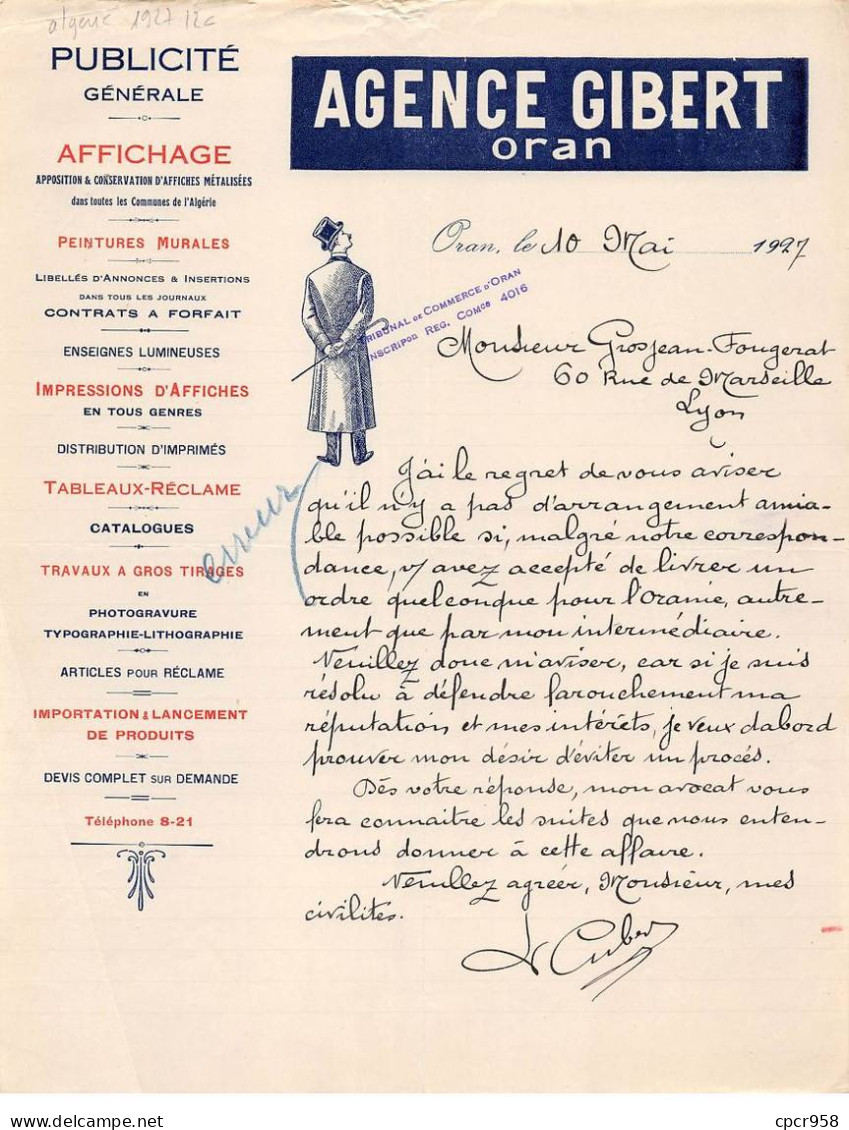 algerie 1927 12c
PUBLICITÉ
GÉNÉRALE
AFFICHAGE
APPOSITION & CONSERVATION D'AFFICHES MÉTALISÉES
dans toutes les Communes de l'Algérie
PEINTURES MURALES
LIBELLÉS D'ANNONCES & INSERTIONS
DANS TOUS LES JOURNAUX
CONTRATS A FORFAIT
ENSEIGNES LUMINEUSES
IMPRESSIONS D'AFFICHES
EN TOUS GENRES
DISTRIBUTION D'IMPRIMÉS
TABLEAUX-RÉCLAME
CATALOGUES
TRAVAUX A GROS TIRAGES
EN
PHOTOGRAVURE
TYPOGRAPHIE-LITHOGRAPHIE
ARTICLES POUR RÉCLAME
IMPORTATION & LANCEMENT
DE PRODUITS
DEVIS COMPLET SUR DEMANDE
Téléphone 8-21
AGENCE GIBERT
oran
Oran, le 10 Mai 1927
TRIBUNAL DE COMMERCE D'ORAN
INSCRIPon REG. COMce 4016
Monsieur Grosjean-Fougerat
60 Rue de Marseille
Lyon
erreur
J'ai le regret de vous aviser
qu'il n'y a pas d'arrangement amia-
ble possible si, malgré notre correspon-
dance, v/ avez accepté de livrer un
ordre quelconque pour l'Oranie, autre-
ment que par mon intermédiaire.
Veuillez donc m'aviser, car si je suis
résolu à défendre farouchement ma
réputation et mes intérêts, je veux d'abord
prouver mon désir d'éviter un procés.
Dés votre réponse, mon avocat vous
fera connaitre les suites que nous enten-
drons donner à cette affaire.
Veuillez agréer, Monsieur, mes
civilités.
delcampe.net
cpcr958